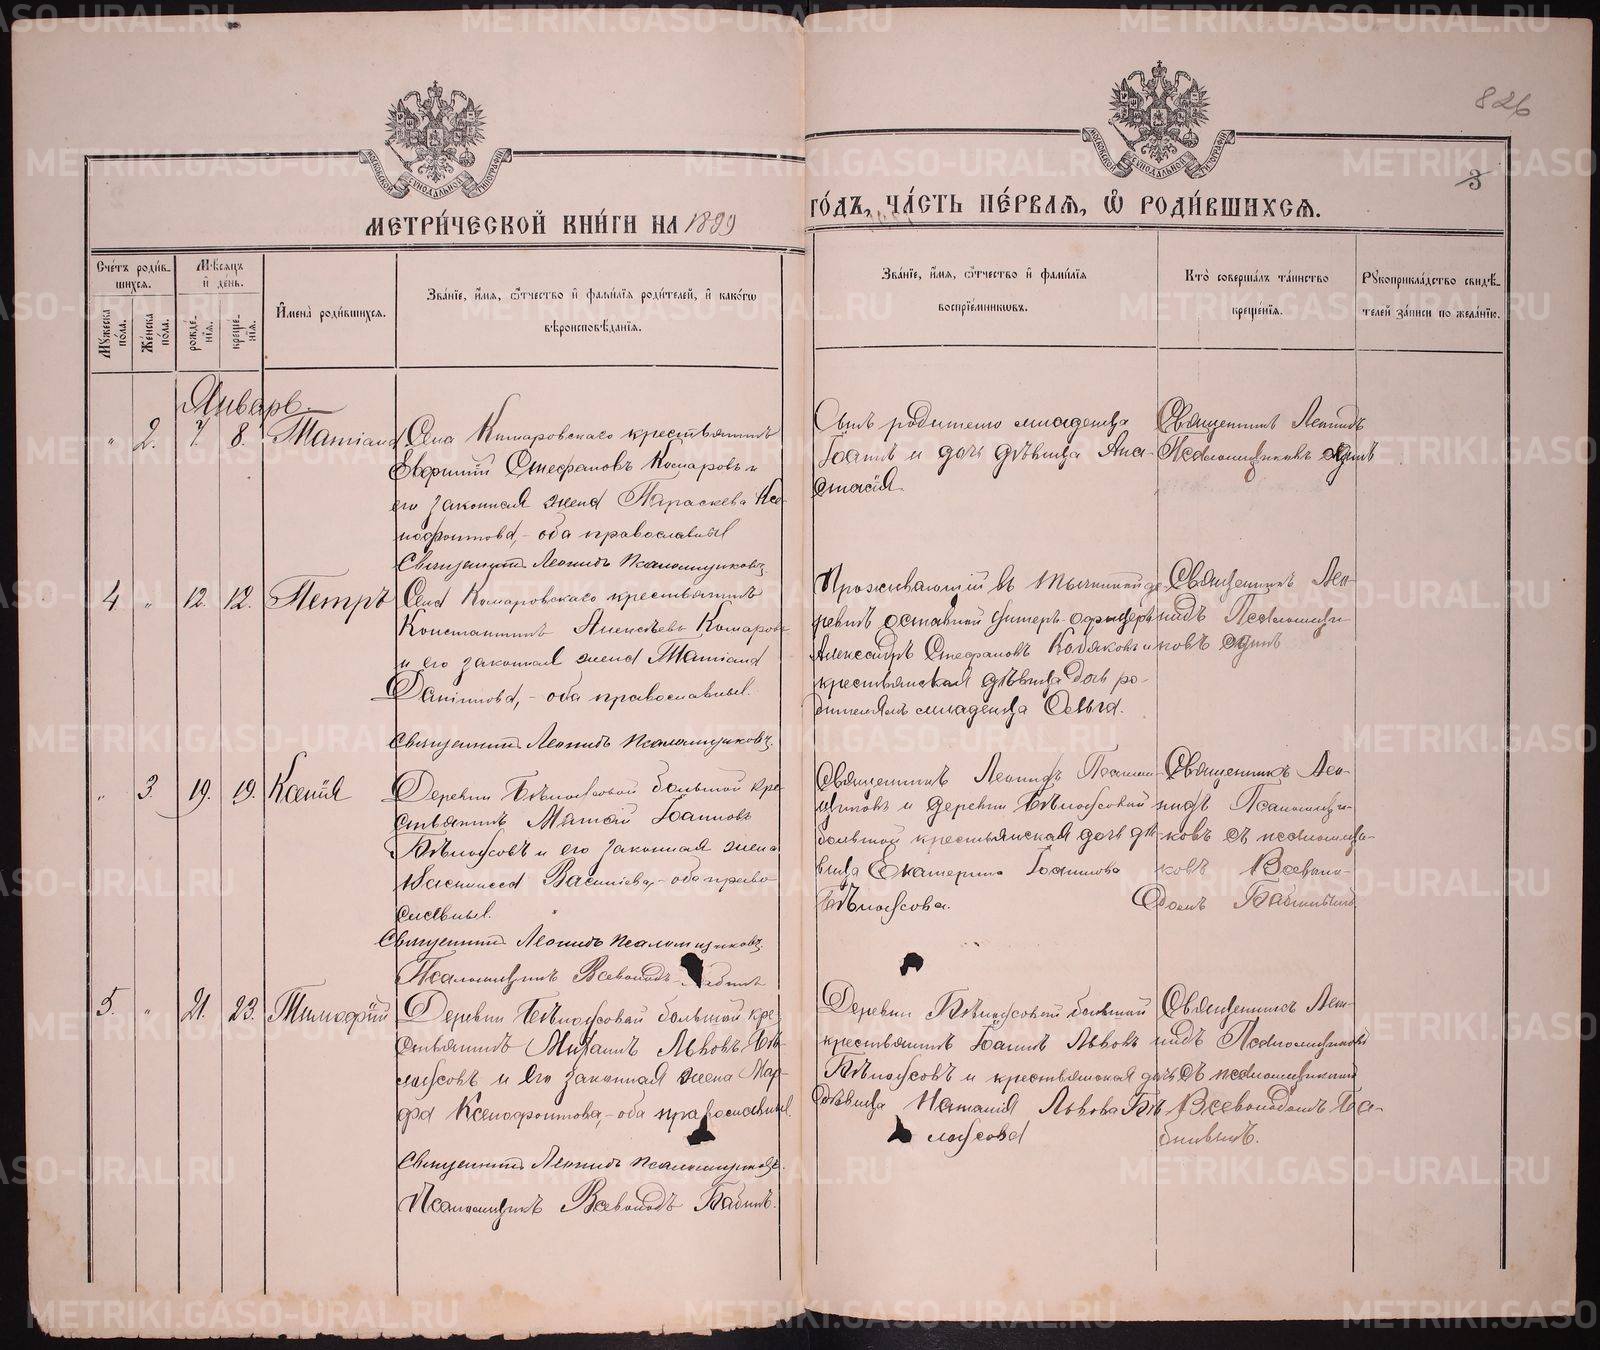 826
3
МОСКОВСКОЙ СѴНОДАЛЬНОЙ ТИПОГРАФІИ
МОСКОВСКОЙ СѴНОДАЛЬНОЙ ТИПОГРАФІИ
МЕТРИ́ЧЕСКОЙ КНИ́ГИ НА 1899 ГО́ДЪ, ЧА́СТЬ ПЕ́РВАЯ, Ѽ РОДИ́ВШИХСЯ.
Сче́тъ роди́вшихся.
Мꙋжеска по́ла.
Же́нска по́ла.
Мѣ́сяцъ и҆ де́нь.
рожде́нїя.
креще́нїя.
И҆мена̀ роди́вшихся.
Зва́нїе, и҆́мя, ѻ҆́тчество и҆ фами́лїя роди́телей, и҆ како́гѡ
вѣроисповѣ́данїя.
Зва́нїе, и҆́мя, ѻ҆́тчество и҆ фами́лїя
воспрїе́мниковъ.
Кто̀ соверша́лъ та́инство
креще́нїя.
Рꙋкоприкла́дство свидѣ́-
телей за́писи по жела́нїю.
Январь.
" 2. 7. 8. Татіана
Села Комаровскаго крестьянинъ
Евфимій Стефановъ Комаровъ и
его законная жена Параскева Ксе-
нофонтова, - оба православные
Священникъ Леонидъ Псаломщиковъ
Сынъ родителю младенца
Іоаннъ и дочь дѣвица Ана-
стасія.
Священникъ Леонидъ
Псаломщиковъ одинъ
4 " 12. 12. Петръ
Села Комаровскаго крестьянинъ
Константинъ Алексѣевъ Комаровъ
и его законная жена Татіана
Даніилова, - оба православные.
Священникъ Леонидъ Псаломщиковъ.
Проживающій въ де-
ревнѣ оставной унтеръ-офицеръ
Александръ Стефановъ Кобяковъ и
крестьянская дѣвица дочь ро-
дителямъ младенца Ольга.
Священникъ Лео-
нидъ Псаломщи-
ковъ одинъ
" 3. 19. 19. Ксенія
Деревни Бѣлоусовой большой кре-
стьянинъ Іоанновъ
Бѣлоусовъ и его законная жена
Василиева, - оба право-
славные.
Священникъ Леонидъ Псаломщиковъ.
Псаломщикъ Всеволодъ Бабинъ
Священникъ Леонидъ Псалом-
щиковъ и деревни Бѣлоусовой
большой крестьянская дочь дѣ-
вица Екатерина Іоаннова
Бѣлоусова.
Священникъ Лео-
нидъ Псаломщи-
ковъ съ псаломщи-
комъ Всеволо-
домъ Бабинымъ
5. " 21. 23. Тимофій
Деревни Бѣлоусовой большой кре-
стьянинъ Михаилъ Львовъ Бѣ-
лоусовъ и его законная жена Мар-
фа Ксенофонтова, - оба православные.
Священникъ Леонидъ Псаломщиковъ.
Псаломщикъ Всеволодъ Бабинъ.
Деревни Бѣлоусовой большой
крестьянинъ Іоаннъ Львовъ
Бѣлоусовъ и крестьянская дочь
дѣвица Наталія Львова Бѣ-
лоусова
Священникъ Лео-
нидъ Псаломщиковъ
съ псаломщикомъ
Всеволодомъ Ба-
бинымъ.
METRIKI.GASO-URAL.RU